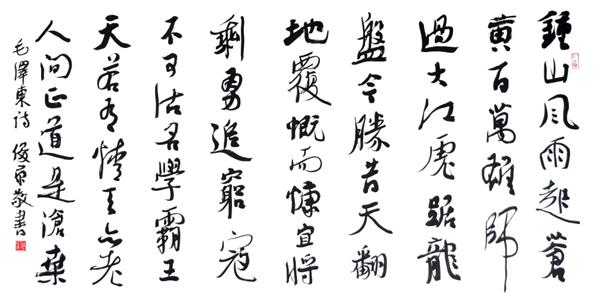 鍾山风雨起蒼
黄百萬雄师
過大江虎踞龍
盤今勝昔天翻
地覆慨而慷宜將
剩勇追窮寇
不可沽名學霸王
天若有情天亦老
人间正道是滄桑
毛澤東诗 俊 敬書